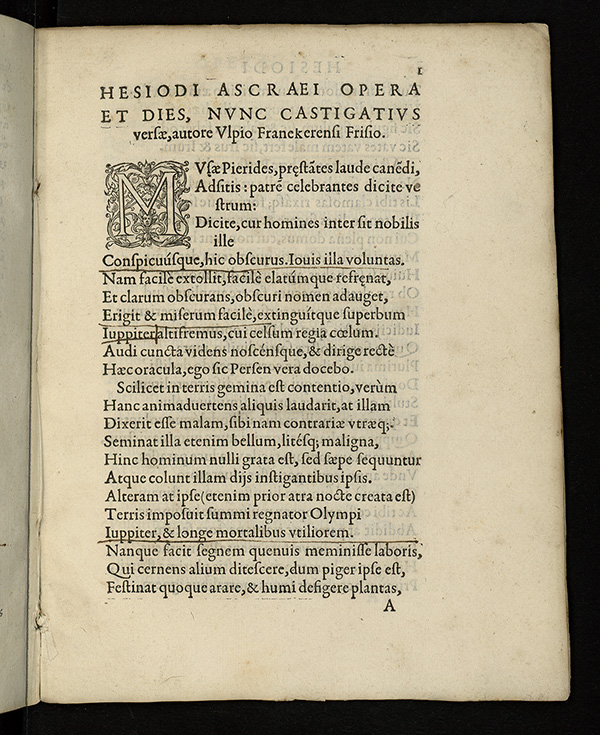 1
HESIODI ASCRAEI OPERA
ET DIES, NVNC CASTIGATIVS
versæ, autore Vlpio Franekerensi Frisio.
MVsæ Pierides, pręstātes laude canēdi,
Adsitis: patrē celebrantes dicite ve
strum:
Dicite, cur homines inter sit nobilis
ille
Conspicuúsque, hic obscurus. Iouis illa voluntas.
Nam facilè extollit, facilè elatúmque refręnat,
Et clarum obscurans, obscuri nomen adauget,
Erigit & miserum facilè, extinguítque superbum
Iuppiter altifremus, cui celsum regia cœlum.
Audi cuncta videns noscénsque, & dirige rectè
Hæc oracula, ego sic Persen vera docebo.
Scilicet in terris gemina est contentio, verùm
Hanc animaduertens aliquis laudarit, at illam
Dixerit esse malam, sibi nam contrariæ vtræq;.
Seminat illa etenim bellum, litésq; maligna,
Hinc hominum nulli grata est, sed sæpe sequuntur
Atque colunt illam dijs instigantibus ipsis.
Alteram at ipse (etenim prior atra nocte creata est)
Terris imposuit summi regnator Olympi
Iuppiter, & longe mortalibus vtiliorem.
Nanque facit segnem quenuis meminisse laboris,
Qui cernens alium ditescere, dum piger ipse est,
Festinat quoque arare, & humi defigere plantas,
A